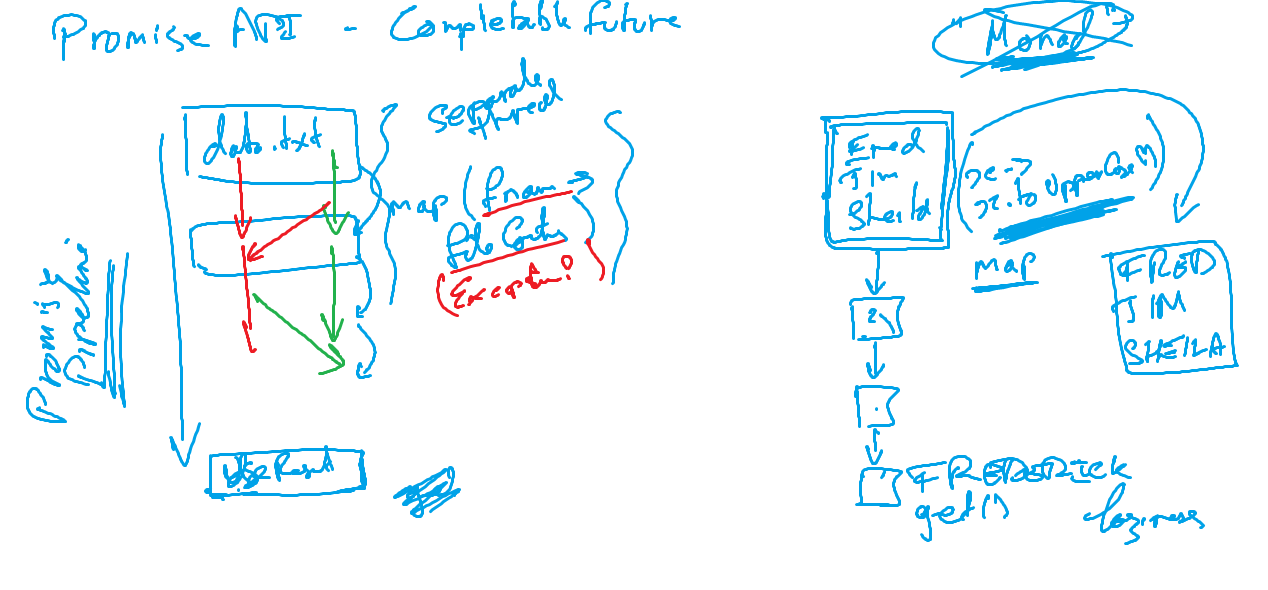 Promise API - Completable future
"Monad"
separate
thread
data.txt
map (fname ->
file Conts
(Exception?)
Promise
Pipeline
Use Result
Fred
Jim
Sheila
(x ->
x.toUpperCase())
map
FRED
JIM
SHEILA
FREDERICK
get()
laziness